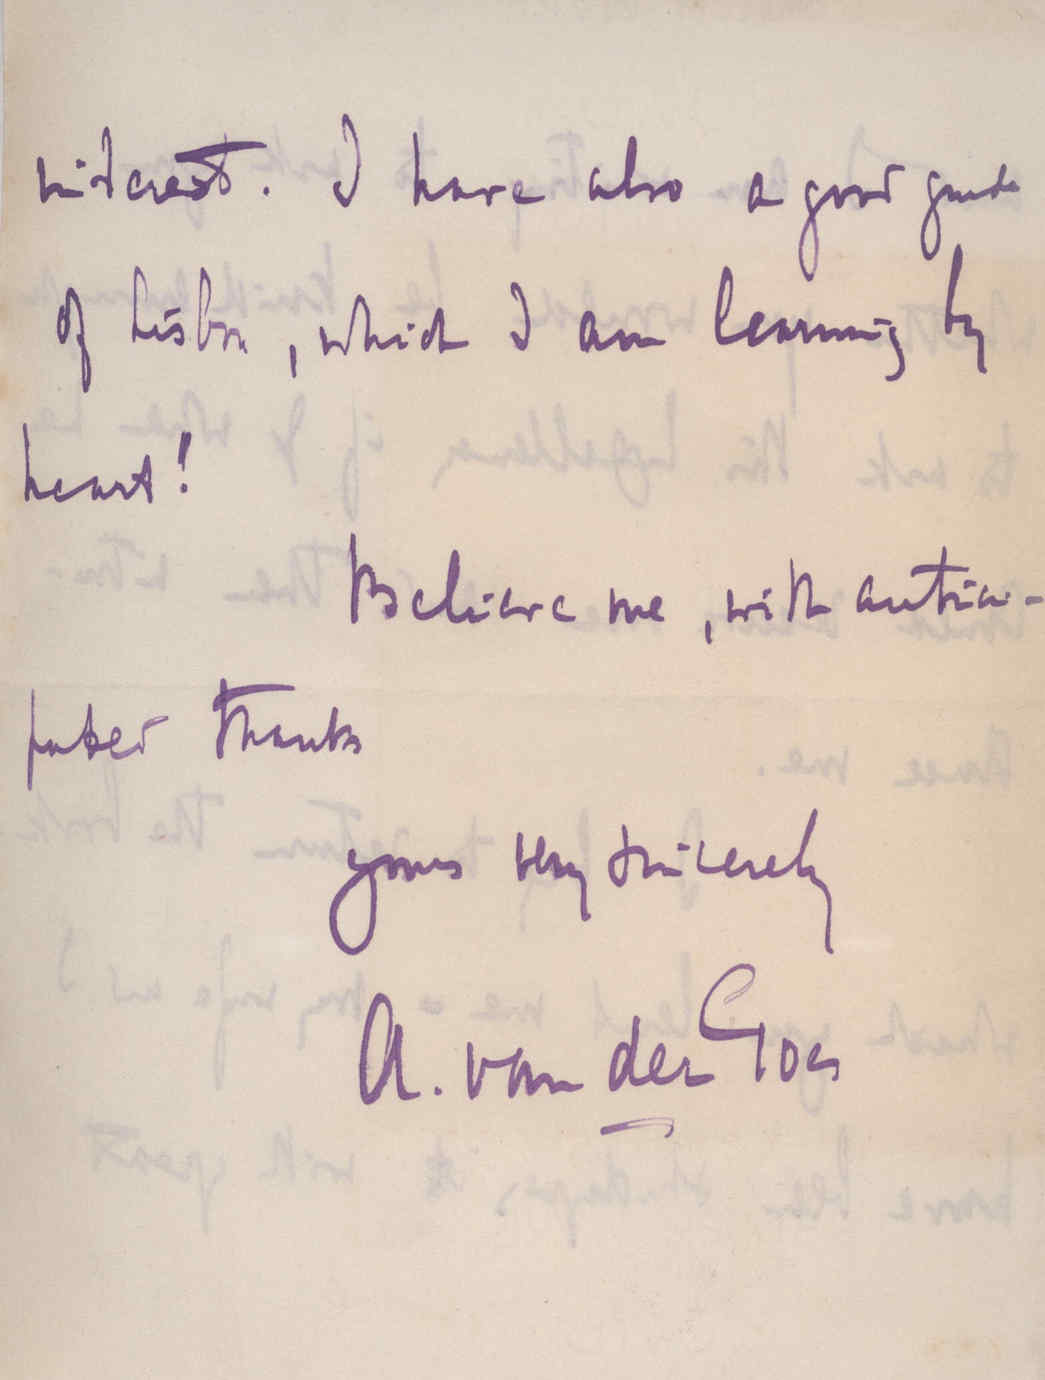 interest. I have also a good guide
of Lisbon, which I am learning by
heart!
Believe me, with antici-
pated thanks
yours very sincerely
A. van der Goes